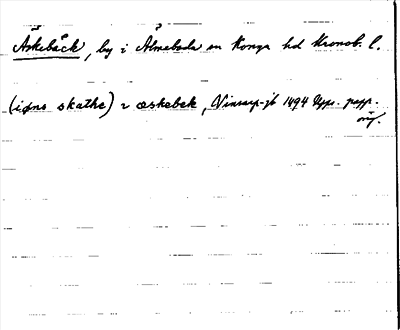 Äskebäck, by i Älmeboda sn Konga hd Kronob. l.
(iøns skathe) 2 æskebek, Vinsarp-jb 1494 Upps. papp.
orig.